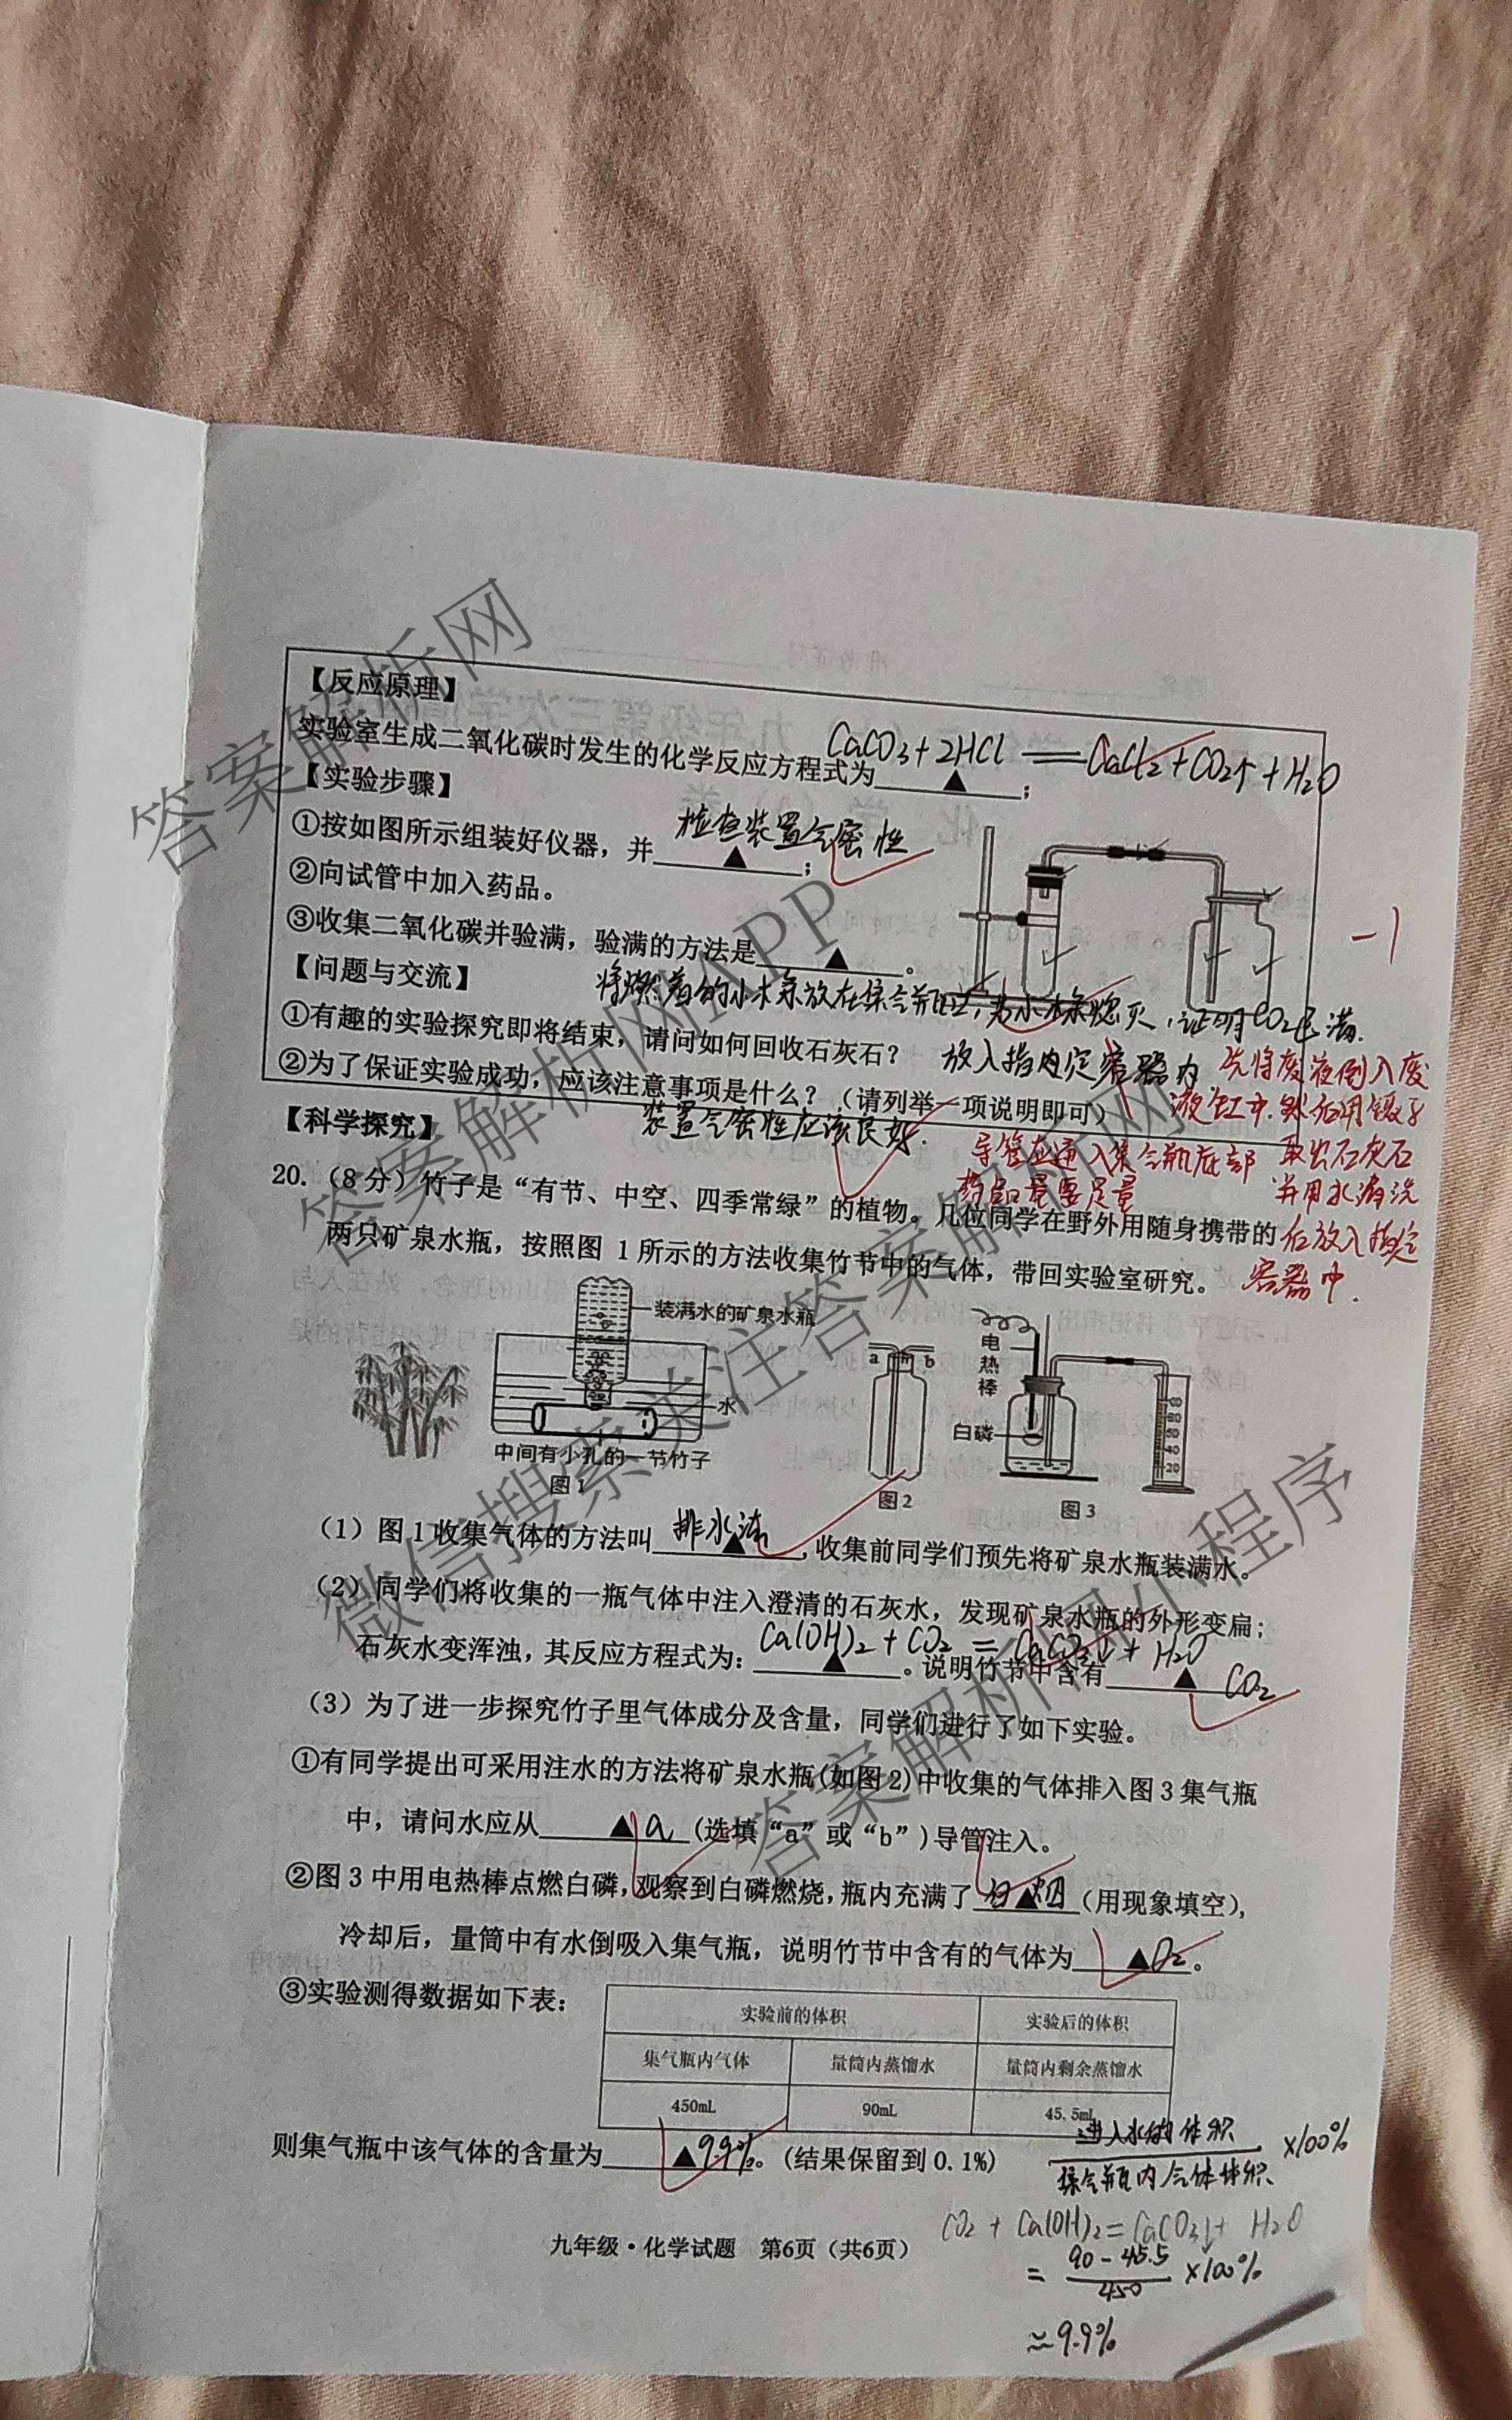 【反应原理】
实验室生成二氧化碳时发生的化学反应方程式为 ▲ ; CaCO3+2HCl══CaCl2+CO2↑+H2O
【实验步骤】
①按如图所示组装好仪器，并 ▲ ; 检查装置气密性
②向试管中加入药品。
③收集二氧化碳并验满，验满的方法是 ▲ 。
将燃着的小木条放在集气瓶口，若小木条熄灭，证明CO2已满.
【问题与交流】
①有趣的实验探究即将结束，请问如何回收石灰石？ 放入指定容器内
②为了保证实验成功，应该注意事项是什么？（请列举一项说明即可）
装置气密性应该良好.
先将废液倒入废
液缸中.然后用镊子
取出石灰石
并用水清洗
后放入指定
容器中.
导管应通入集气瓶底部
药品量要足量
-1
【科学探究】
20.（8分）竹子是“有节、中空、四季常绿”的植物。几位同学在野外用随身携带的
两只矿泉水瓶，按照图 1 所示的方法收集竹节中的气体，带回实验室研究。
装满水的矿泉水瓶
水
中间有小孔的一节竹子
图1
a b
图2
电热棒
白磷
80
60
40
20
图3
（1）图1收集气体的方法叫 ▲ 排水法，收集前同学们预先将矿泉水瓶装满水。
（2）同学们将收集的一瓶气体中注入澄清的石灰水，发现矿泉水瓶的外形变扁；
石灰水变浑浊，其反应方程式为： ▲ Ca(OH)2+CO2=CaCO3↓+H2O。说明竹节中含有 ▲ CO2
（3）为了进一步探究竹子里气体成分及含量，同学们进行了如下实验。
①有同学提出可采用注水的方法将矿泉水瓶(如图2)中收集的气体排入图3集气瓶
中，请问水应从 ▲ a (选填“a”或“b”)导管注入。
②图3中用电热棒点燃白磷，观察到白磷燃烧，瓶内充满了 ▲ 白烟（用现象填空），
冷却后，量筒中有水倒吸入集气瓶，说明竹节中含有的气体为 ▲ O2。
③实验测得数据如下表：
实验前的体积 实验后的体积
集气瓶内气体 量筒内蒸馏水 量筒内剩余蒸馏水
450mL 90mL 45.5mL
则集气瓶中该气体的含量为 ▲ 9.9%。(结果保留到0.1%)
进入水的体积
集气瓶内气体体积 ×100%
CO2+Ca(OH)2=CaCO3↓+H2O
= 90-45.5
450 ×100%
≈9.9%
九年级·化学试题 第6页（共6页）
答案解析网
答案解析网APP
微信搜索关注答案解析网
答案解析网小程序